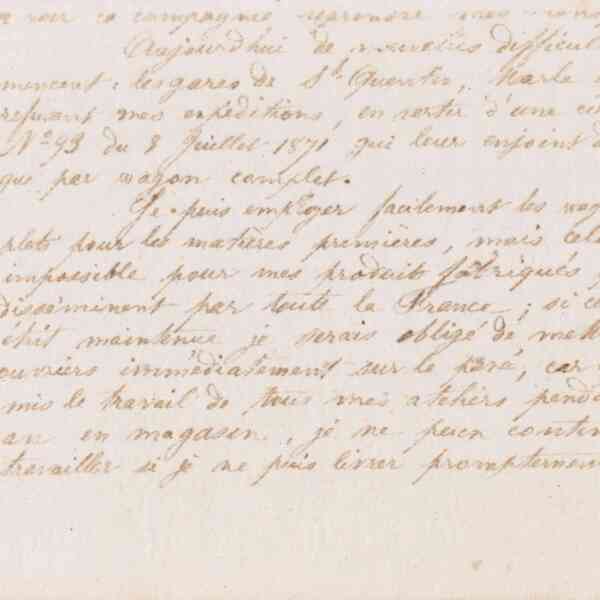 voir la compagnie reprendre mes
Aujourd'hui de nouvelles difficul
mencent : les gares de St Quentin, Marle
refusant mes expéditions, en vertu d'une ci
No 93 du 8 Juillet 1871 qui leur enjoint d
que par wagon complet.
Je puis employer facilement les wag
plets pour les matières premières, mais cela
impossible pour mes produit fabriqués,
disséminent par toute la France ; si c
était maintenue je serais obligé de mett
ouvriers immédiatement sur le pavé, car
mis le travail de tous mes ateliers penda
an en magasin, je ne peux contin
travailler si je ne puis livrer promptement